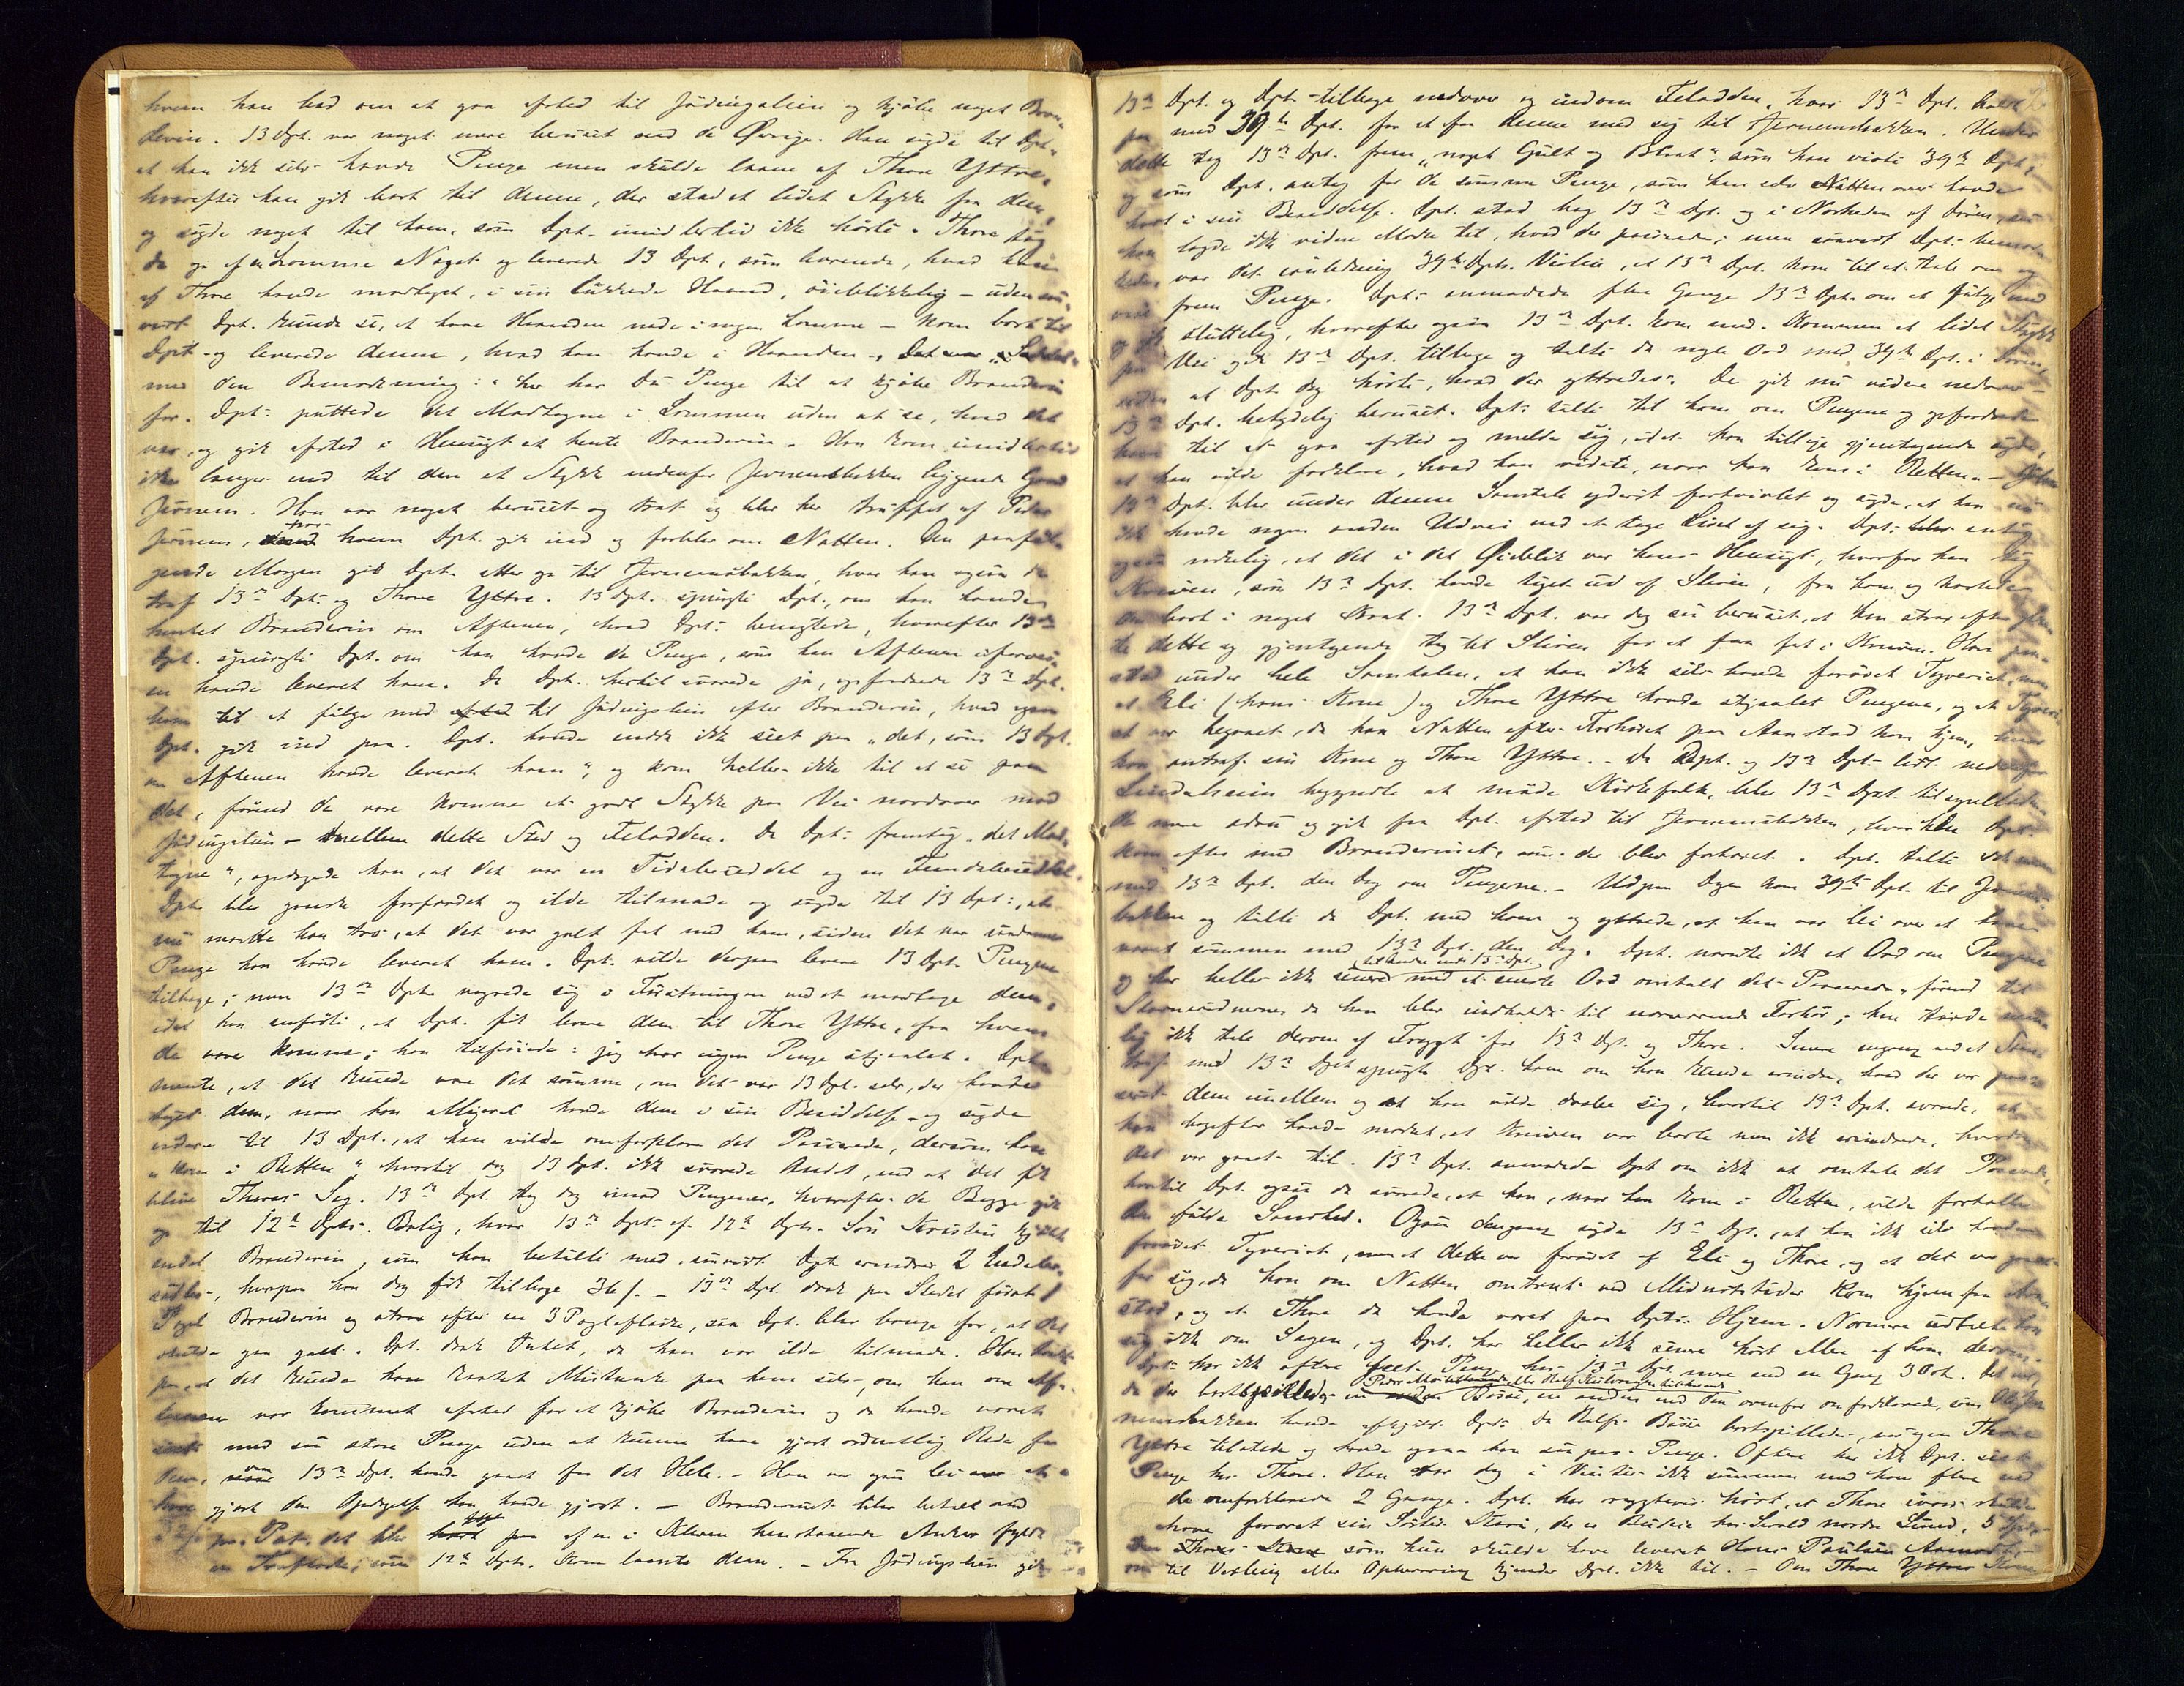 hvem han bad om at gaa afsted til Jødingslien og kjøbe noget Bræn-
devin. 13 Dpt. var noget mere beruset end de Øvrige. Han sagde til Dpt.
at han ikke selv havde Penge men skulde laane af Thore Yttre,
hvorefter han gik bort til denne, der stod et lidet Stykke fra dem,
og sagde noget til ham, som Dpt. imidlertid ikke hørte. Thore tog
da op af en Lomme Noget og leverede 13 Dpt., som havende, hvad han
af Thore havde modtaget, i sin lukkede Haand, øieblikkelig – uden saa-
vidt Dpt. kunde se, at have Haanden nede i nogen Lomme – kom bort til
Dpt. og leverede denne, hvad han havde i Haanden
med den Bemærkning: "her har Du Penge til at kjøbe Brændevin
for. Dpt. puttede det Modtagne i Lommen uden at se, hvad det
var, og gik afsted i Hensigt at hente Brændevin. Han kom imidlertid
ikke længer end til den et Stykke nedenfor Jernemsbakken liggende Gaard
Jernem. Han var noget beruset og træt og blev her truffet af Peder
Jernem, hos hvem Dpt. gik ind og forblev om Natten. Den paaføl-
gende Morgen gik Dpt. atter op til Jernemsbakken, hvor han ogsaa da
traf 13de Dpt. og Thore Yttre. 13 Dpt. spurgte Dpt., om han havde
hentet Brændevin om Aftenen, hvad Dpt. benegtede, hvorefter 13de
Dpt. spurgte Dpt. om han havde de Penge, som han Aftenen iforvei-
en havde leveret ham. Da Dpt. hertil svarede ja, opfordrede 13de Dpt.
ham til at følge med til Jødingslien efter Brændevin, hvad ogsaa
Dpt. gik ind paa. Dpt. havde endda ikke seet paa "det, som 13 Dpt.
om Aftenen havde leveret ham", og kom heller ikke til at se paa
det, førend de vare komne et godt Stykke paa Vei nordover mod
Jødingslien – mellem dette Sted og Feladden. Da Dpt. fremtog "det Mod-
tagne", opdagede han, at det var en Tidalerseddel og en Femdalerseddel.
Dpt. blev ganske forfærdet og ilde tilmode og sagde til 13 Dpt., at
nu maatte han tro, at det var galt fat med ham, siden det var saadanne
Penge han havde leveret ham. Dpt. vilde derpaa levere 13 Dpt. Pengene
tilbage; men 13de Dpt. vægrede sig i Førstningen ved at modtage dem,
idet han anførte, at Dpt. fik levere dem til Thore Yttre, fra hvem
de vare komne; han tilføiede: jeg har ingen Penge stjaalet. Dpt.
mente, at det kunde være det samme, om det var 13 Dpt. selv, der havde
taget dem, naar han alligevel havde dem i sin Besiddelse og sagde
videre til 13 Dpt., at han vilde omforklare det Passerede, dersom han
"kom i Retten" hvortil dog 13 Dpt. ikke svarede Andet, end at det fik
blive Thores Sag. 13de Dpt. tog dog imod Pengene, hvorefter de Begge gik
op til 12te Dpts. Bolig, hvor 13de Dpt. af 12te Dpts. Søn Kristen kjøbte
endel Brændevin, som han betalte med, saavidt Dpt. erindrer 2 Endaler-
sedler, hvorpaa han dog fik tilbage 36 s. – 13de Dpt. drak paa Stedet først 1
Pægel Brændevin og strax efter en 3 Pæglesflaske, saa Dpt. blev bange for, at det
skulde gaa galt. Dpt. drak Intet, da han var ilde tilmode.
paa, at det kunde have kastet Mistanke paa ham selv, om han om Af-
tenen var kommet afsted for at kjøbe Brændevin og da havde været
seet med saa store Penge uden at kunne have gjort ordentlig Rede for
dem, som 13de Dpt. havde gaaet fra det Hele. – Han var ogsaa lei over at
have gjort den Opdagelse han havde gjort. – Brændevinet blev betalt med
pr. Pot. det blev tappet paa af en i Kleven henstaaende Anker fyldt
som 12te Dpts. Kone laante dem. – Fra Jødingslien gik
13de Dpt. og Dpt. tilbage nedover og indom Feladden, hvor 13de Dpt. 
paa med 39te Dpt. for at faa denne med sig til Jernemsbakken. Under
dette tog 13de Dpt. frem "noget Gult og Blaat", som han viste 39te Dpt.,
og som Dpt. antog for de samme Penge, som han selv Natten over havde
havt i sin Besiddelse. Dpt. stod hos 13de Dpt. og i Nærheden af Døren,
han lagde ikke videre Mærke til, hvad der passerede; men saavidt Dpt.
var det i anledning 39te Dpts. Violin, at 13de Dpt. kom til at tale om og
vise frem Penge. Dpt. anmodede flere Gange 13de Dpt. om at følge med
og gik sluttelig, hvorefter ogsaa 13de Dpt. kom med. Kommen et lidet Stykke
paa Vei gik 13de Dpt. tilbage og talte da nogle Ord med 39te Dpt. i Døren,
uden at Dpt. dog hørte, hvad der yttredes. De gik nu videre nedover
13de Dpt. betydelig beruset. Dpt. talte til ham om Pengene og opfordrede
ham til at gaa afsted og melde sig, idet han tillige gjentagende sagde,
at han vilde forklare, hvad han vidste, naar han kom i Retten. –
13de Dpt. blev under denne Samtale yderst fortvivlet og sagde, at han nu
ikke havde nogen anden Udvei end at tage Livet af sig. Dpt. antog
ogsaa virkelig, at det i det Øieblik var hans Hensigt, hvorfor han tog
Kniven, som 13de Dpt. havde taget ud af Sliren, fra ham og kastede
den bort i noget Krat. 13de Dpt. var dog saa beruset, at han strax efter glem-
te dette og gjentagende tog til Sliren for at faa fat i Kniven. Han paa-
stod under hele Samtalen, at han ikke selv havde forøvet Tyveriet, men
at Eli (hans Kone) og Thore Yttre havde stjaalet Pengene, og at Tyveri-
et var begaaet, da han Natten efter Forhøret paa Aanstad kom hjem, hvor
han antraf sin Kone og Thore Yttre. – Da Dpt. og 13de Dpt. lidt nedenfor
Lindalseien begyndte at møde Kirkefolk, blev 13de Dpt. tilsyneladen-
de mere ædru og gik fra Dpt. afsted til Jernemsbakken, hvor han Dpt.
kom efter med Brændevinet, som der blev fortæret. Dpt. talte ikke mere
med 13de Dpt. den Dag om Pengene. – Udpaa Dagen kom 39te Dpt. til Jernems-
bakken og talte da Dpt. med ham og yttrede, at han var lei over at have
været sammen med 13de Dpt. den Dag. Dpt. nævnte ikke et Ord om Pengene
til Andre end 13de Dpt.
og har heller ikke senere med et eneste Ord omtalt det Passerede, førend til
Stævnevidnerne, da han blev indkaldt til nærværende Forhør; han turde nem-
lig ikke tale derom af Frygt for 13de Dpt. og Thore. Senere engang ved et Sam-
træf med 13de Dpt. spurgte Dpt. ham om han kunde erindre, hvad der var pas-
seret dem imellem og at han vilde dræbe sig, hvortil 13de Dpt. svarede, at
han bagefter havde mærket, at Kniven var borte men ikke erindrede, hvordan
det var gaaet til. 13de Dpt. anmodede Dpt. om ikke at omtale det Passerede,
hvortil Dpt. ogsaa da svarede, at han, naar han kom i Retten, vilde fortælle
den fulde Sandhed. Ogsaa dengang sagde 13de Dpt., at han ikke selv havde
forøvet Tyveriet, men at dette var forøvet af Eli og Thore, og at det var gaaet
for sig, da han om Natten omtrent ved Midnatstider kom hjem fra Aan-
stad, og at Thore da havde været paa Dpts. Hjem. Nærmere udtalte han
sig ikke om Sagen, og Dpt. har heller ikke senere hørt ellers af ham derom.
Dpt. har ikke oftere seet Penge hos 13de Dpt. mere end en Gang 3 Ort. Det var,
da der bortspilledes en Bøsse, en anden end den ovenfor omforklarede, som
nemsbakken havde afkjøbt Dpt. Da Bøsse bortspilledes, var ogsaa Thore
Yttre tilstede og havde ogsaa han saa par Penge. Oftere har ikke Dpt. seet
Penge hos Thore. Han var dog i Vinter ikke sammen med ham flere end
de omforklarede 2 Gange. Dpt. har rygtevis hørt, at Thore ivaar skulde
have foræret sin Søster Mari, der er Budeie hos Iwald nordre Lund, 5 Spd.
som hun skulde have leveret Hans Paulsen
til Vexling eller Opbevaring kjender Dpt. ikke til. – Om Thore